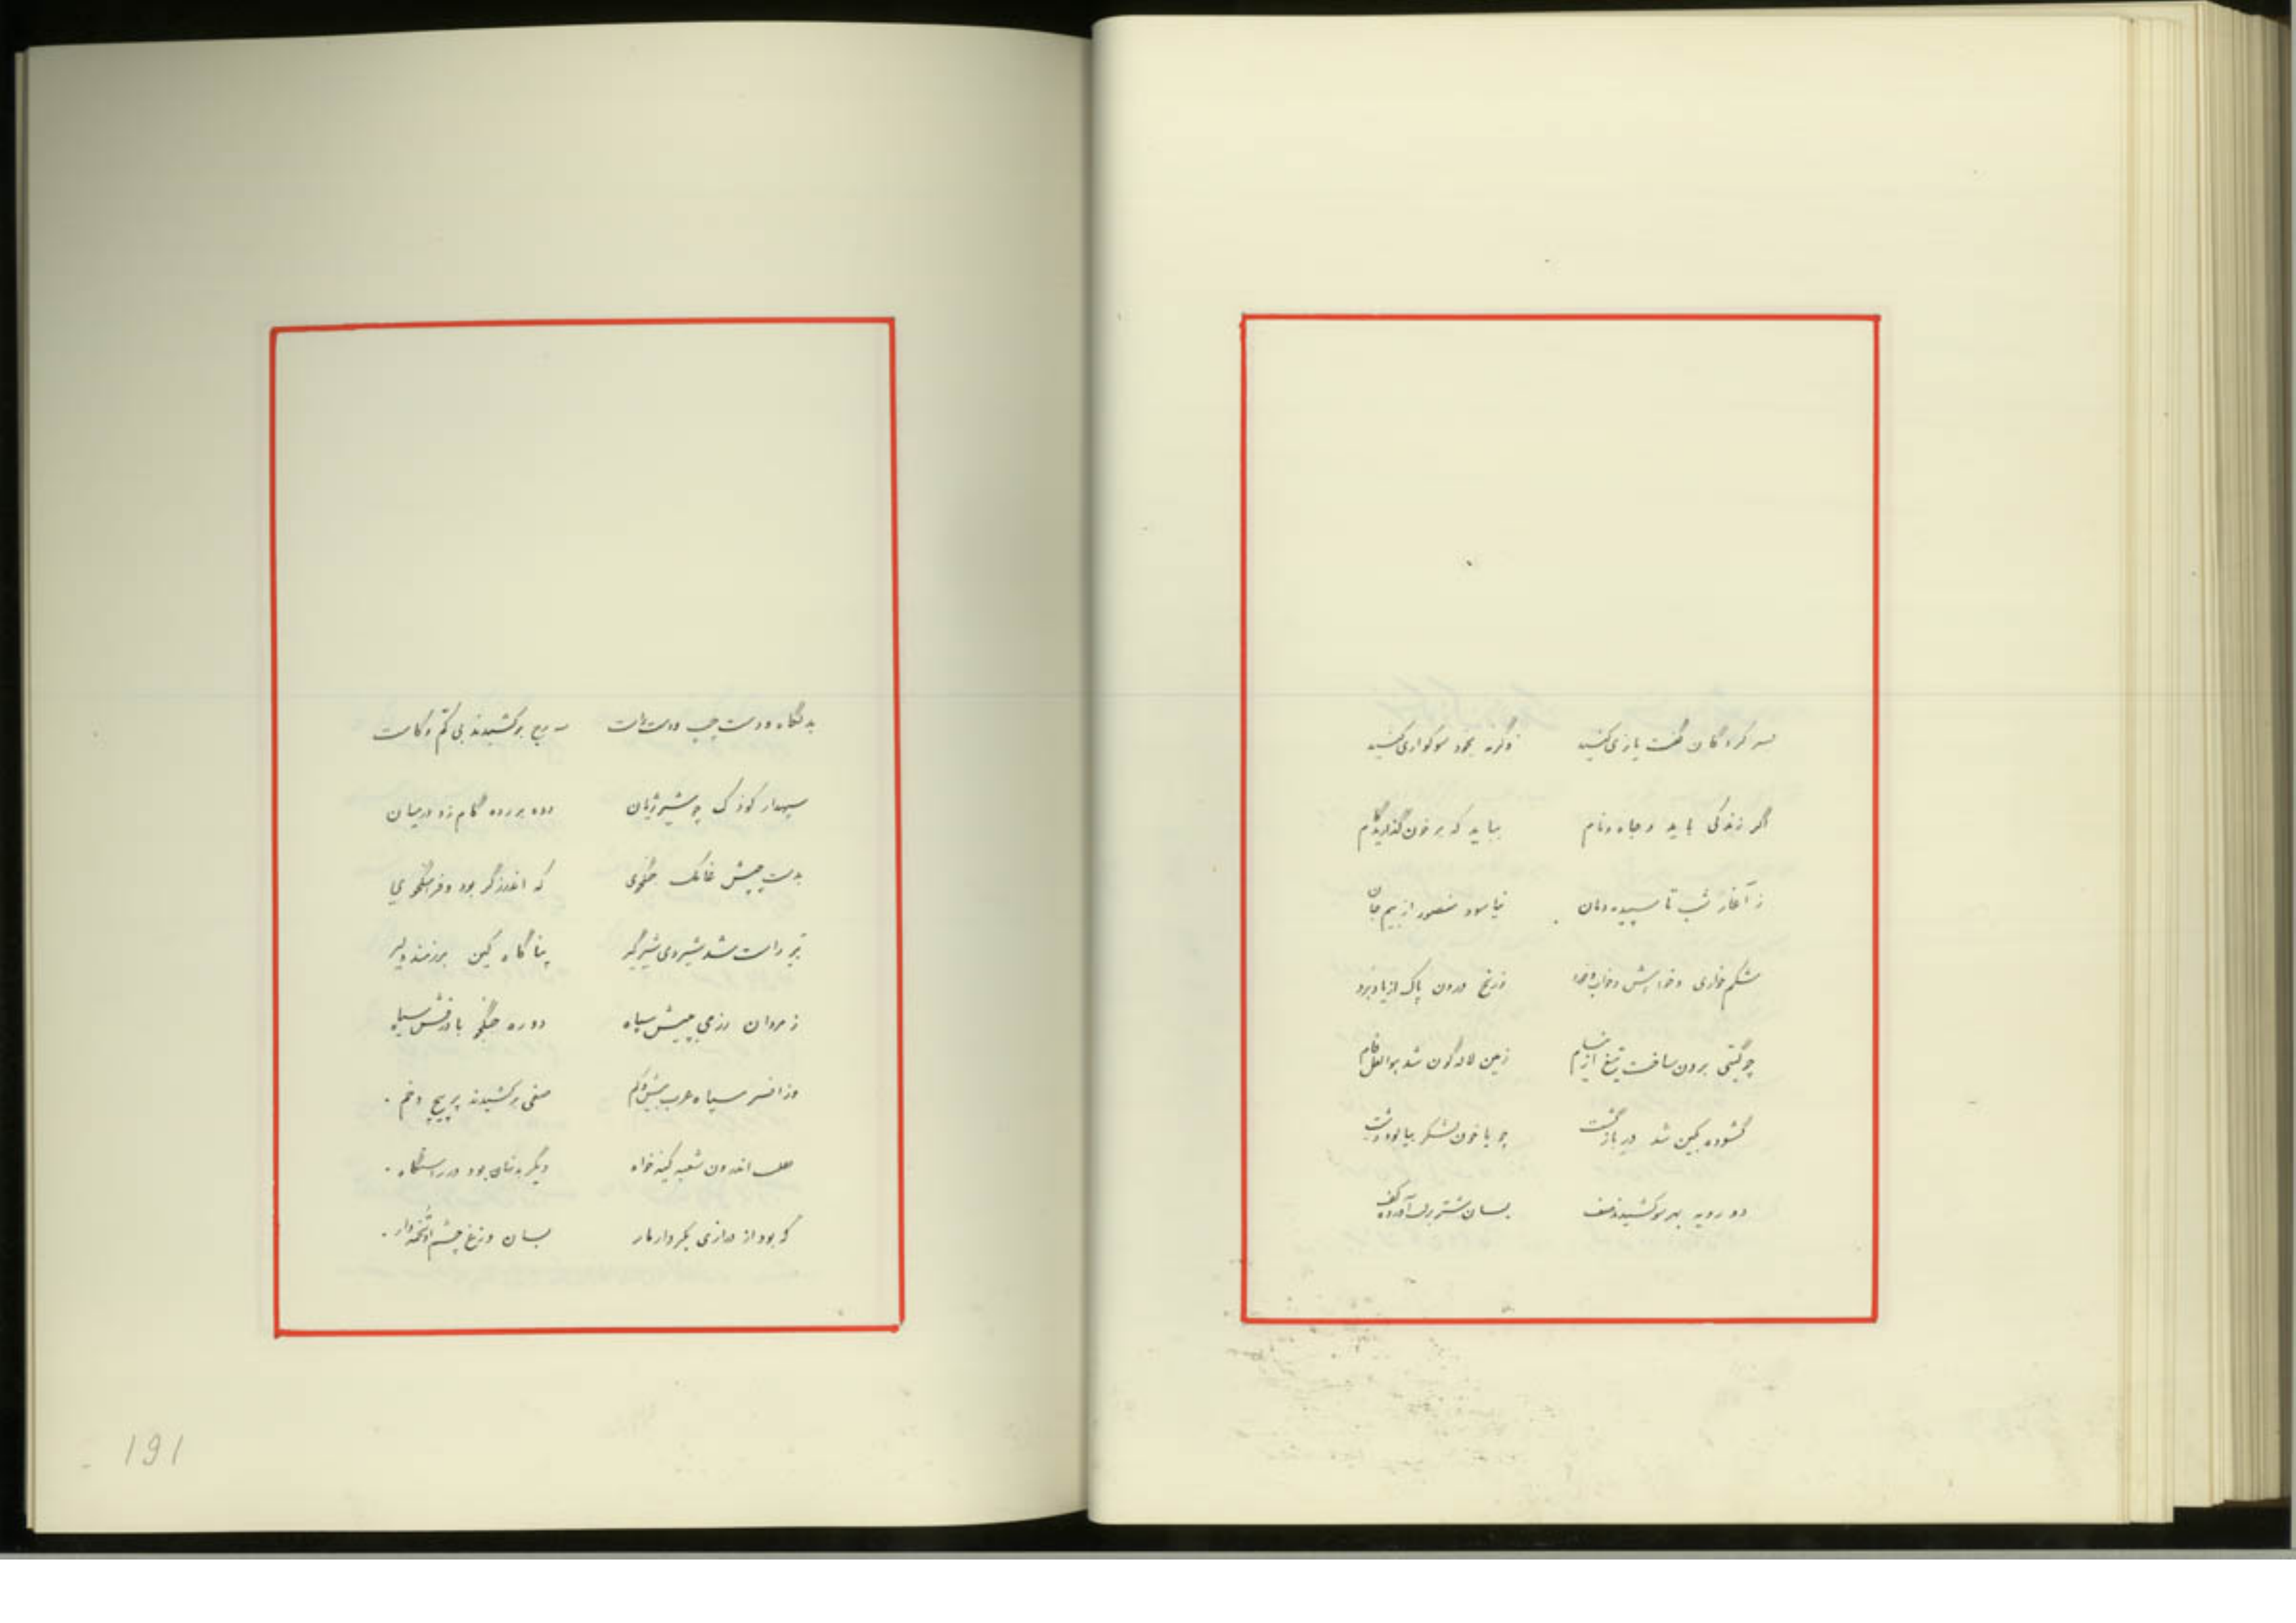 سر کردگان گفت یاری کنید وگرنه بخود سوگواری کنید
اگر زندگی باید و جاه و نام بباید که بر خون گذارید گام
ز آغاز شب تا سپیده دمان نیاسود منصور از بیم جان
شکم خواری و خورد و رنج درون پاک از یاد برد
چو گیتی برون ساخت تیغ از نیام زمین لاله گون شد هوا لعل فام
گشوده بکین شد در باز گشت چو با خون لشکر بیالود دشت
دو رویه بهر سو کشیدند صف بسان شتر بر لب آورده کف
بدنگاه و دست چپ و دست راست برکشیدند بی کم و کاست
سپهدار کوذک چو شیر ژیان رده بر رده گام زد در میان
بدست چپش غانک جنگجوی که اندرز گر بود و فرهنگجوی
بر راست شد شیروی شیر گیر بناگاه کین برزمند دلیر
ز مردان رزمی چپش سپاه دو ره جنگجو با درفش سیاه
وز افسر سپاه عرب بیش و کم صفی برکشیدند پر پیچ و خم
اندرون شعبه کینه خواه دیگر بدنسان بود در رزمگاه
که بود از درازی بکردار مار بسان وزغ چشم او
191